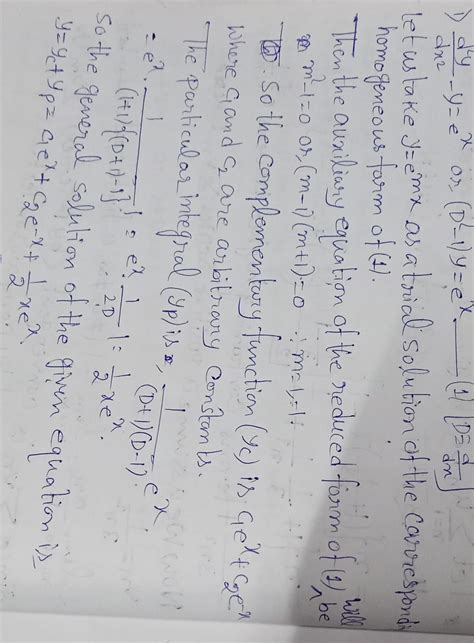 1) d²y/dx² - y = eˣ or, (D²-1)y = eˣ ——— (1) [D ≡ d/dx]
Let us take y = eᵐˣ as a trial solution of the correspondi
homogeneous form of (1).
Then the auxiliary equation of the reduced form of (1) will be
m²-1=0 or, (m-1)(m+1)=0 ∴ m=1,-1.
So the complementary function (yc) is c₁eˣ + c₂e⁻ˣ
where c₁ and c₂ are arbitrary constants.
The particular integral (yp) is, 1/(D+1)(D-1) . eˣ.
= eˣ. 1/(1+1){(D+1)-1} 1 = eˣ 1/2D 1 = 1/2 xeˣ.
So the general solution of the given equation is
y = yc + yp = c₁eˣ + c₂e⁻ˣ + 1/2 xeˣ.